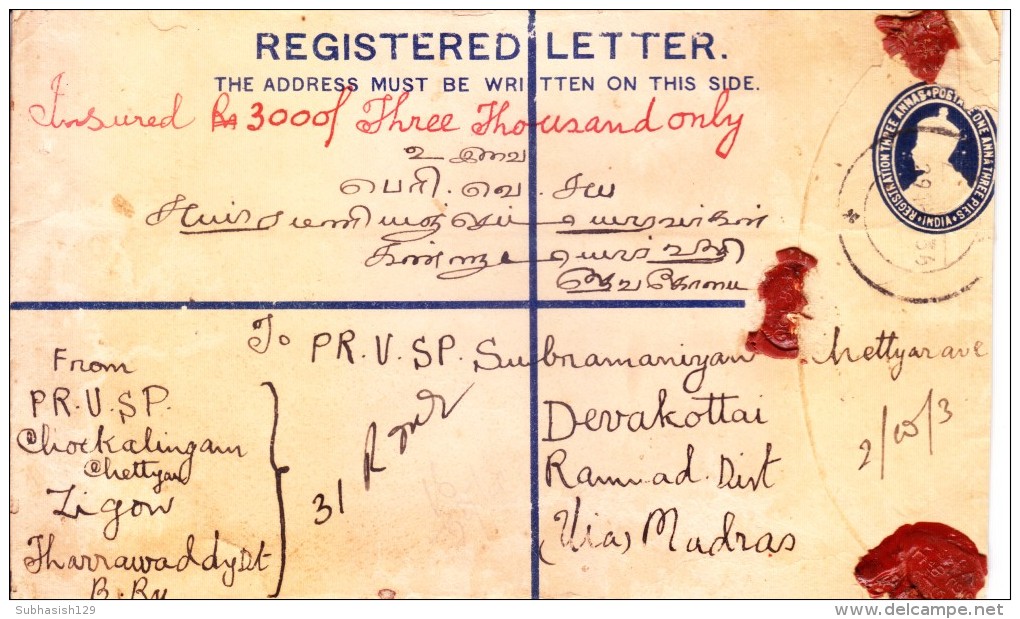 REGISTERED LETTER.
THE ADDRESS MUST BE WRITTEN ON THIS SIDE.
Insured Rs 3000/ Three Thousand only
REGISTRATION THREE ANNAS • POSTAGE ONE ANNA THREE PIES • INDIA
உ இவை
பெரி. வெ. சுப
தேவகோட்டை
To PR. V. SP. Subramaniyan Chettyar
Devakottai
Ramnad. Dist
(Via) Madras
2/10/3
From
PR. V. SP.
Chockalingam
Chettyar
Zigon
Tharrawaddy Dt
31
Subhasish129
delcampe.net